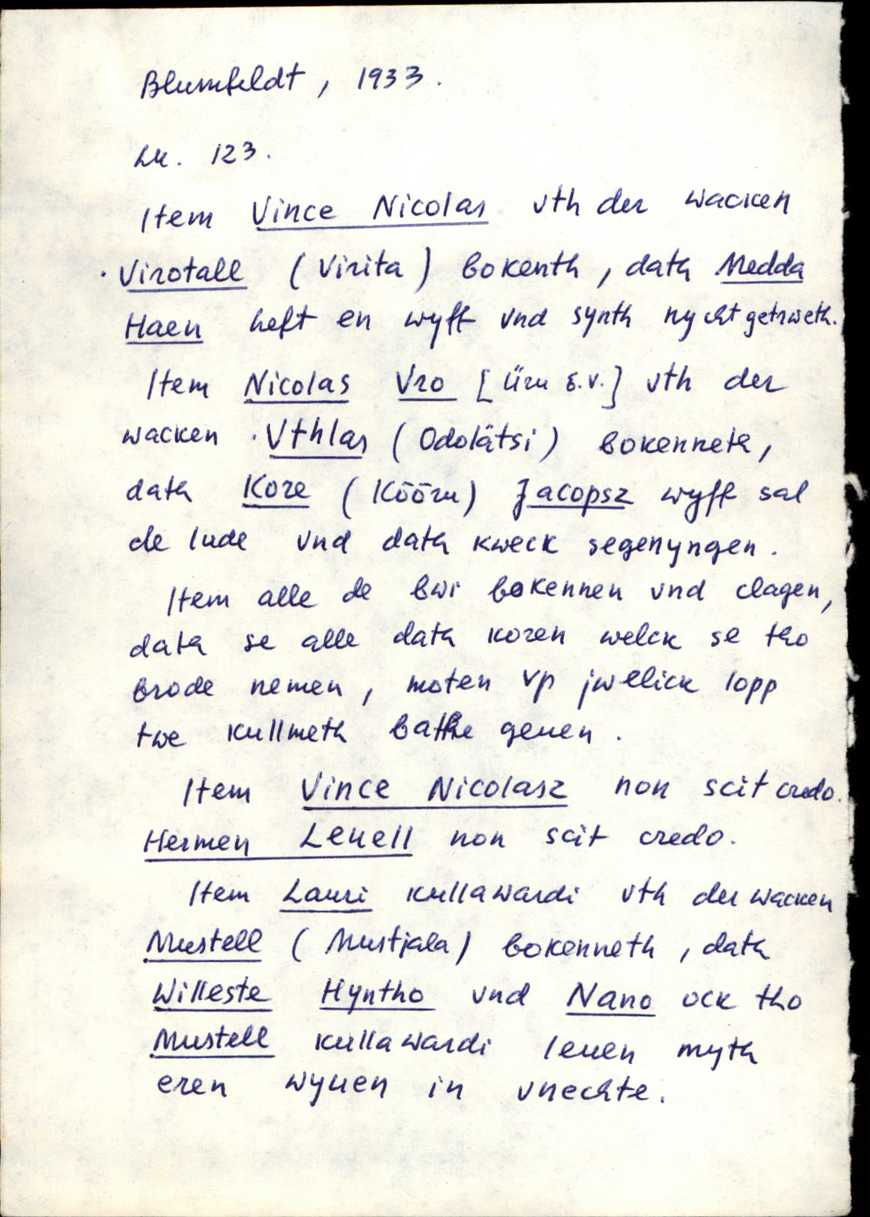 Blumfeldt, 1933.
Lk. 123.
Item Vince Nicolas vth der wacken
Virotall (Virita) bokenth, dath Medda
Haen heft en wyff vnd synth nycht getrweth.
Item Nicolas Vro [Üru s.v.] vth der
wacken Vthlas (Odolätsi) bokenneth,
dath Kore (Kõõru) Jacopsz wyff sal
de lude vnd dath kweck segenyngen.
Item alle de bwr bokennen vnd clagen,
dath se alle dath koren welck se tho
brode nemen, moten vp jwelick lopp
twe kullmeth bathe geuen.
Item Vince Nicolasz non scit credo.
Hermen Leuell non scit credo.
Item Lauri kullawardi vth der wacken
Mustell (Mustjala) bokenneth, dath
Willeste Hyntho vnd Nano ock tho
Mustell kullawardi leuen myth
eren wyuen in vnechte.